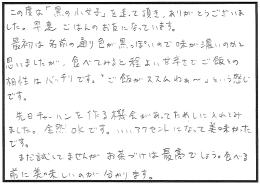 この度は「黒の小女子」を送って頂き、ありがとうございま
した。早速ごはんのお友になっています。
最初は名前の通り色が黒っぽいので味が濃いのかと
思いましたが、食べてみると程よい甘辛さでご飯との
相性はバッチリです。"ご飯がススムわぁ〜"という感じ
です。
先日チャーハンを作る機会があってためしに入れてみ
ました。全然OKです。いいアクセントになって美味かった
です。
まだ試してませんがお茶づけは最高でしょう。食べる
前に美味しいのが分かります。